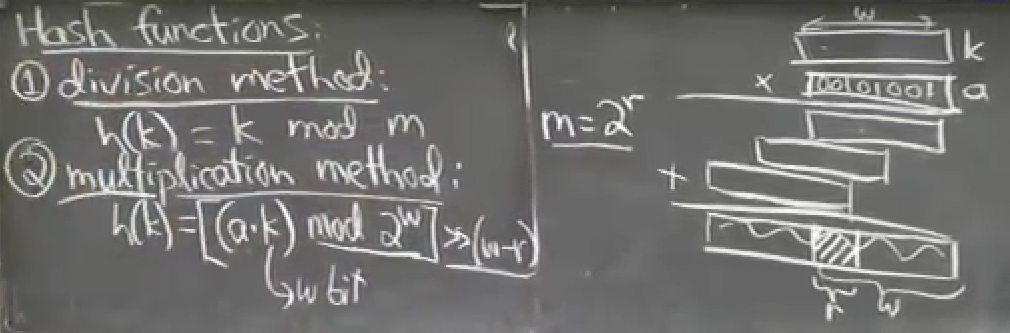 Hash functions:
① division method:
h(k) = k mod m
② multiplication method:
h(k) = [(a·k) mod 2^w] >> (w-r)
↳ w bit
m = 2^r
w
k
x 100101001 a
+
r w